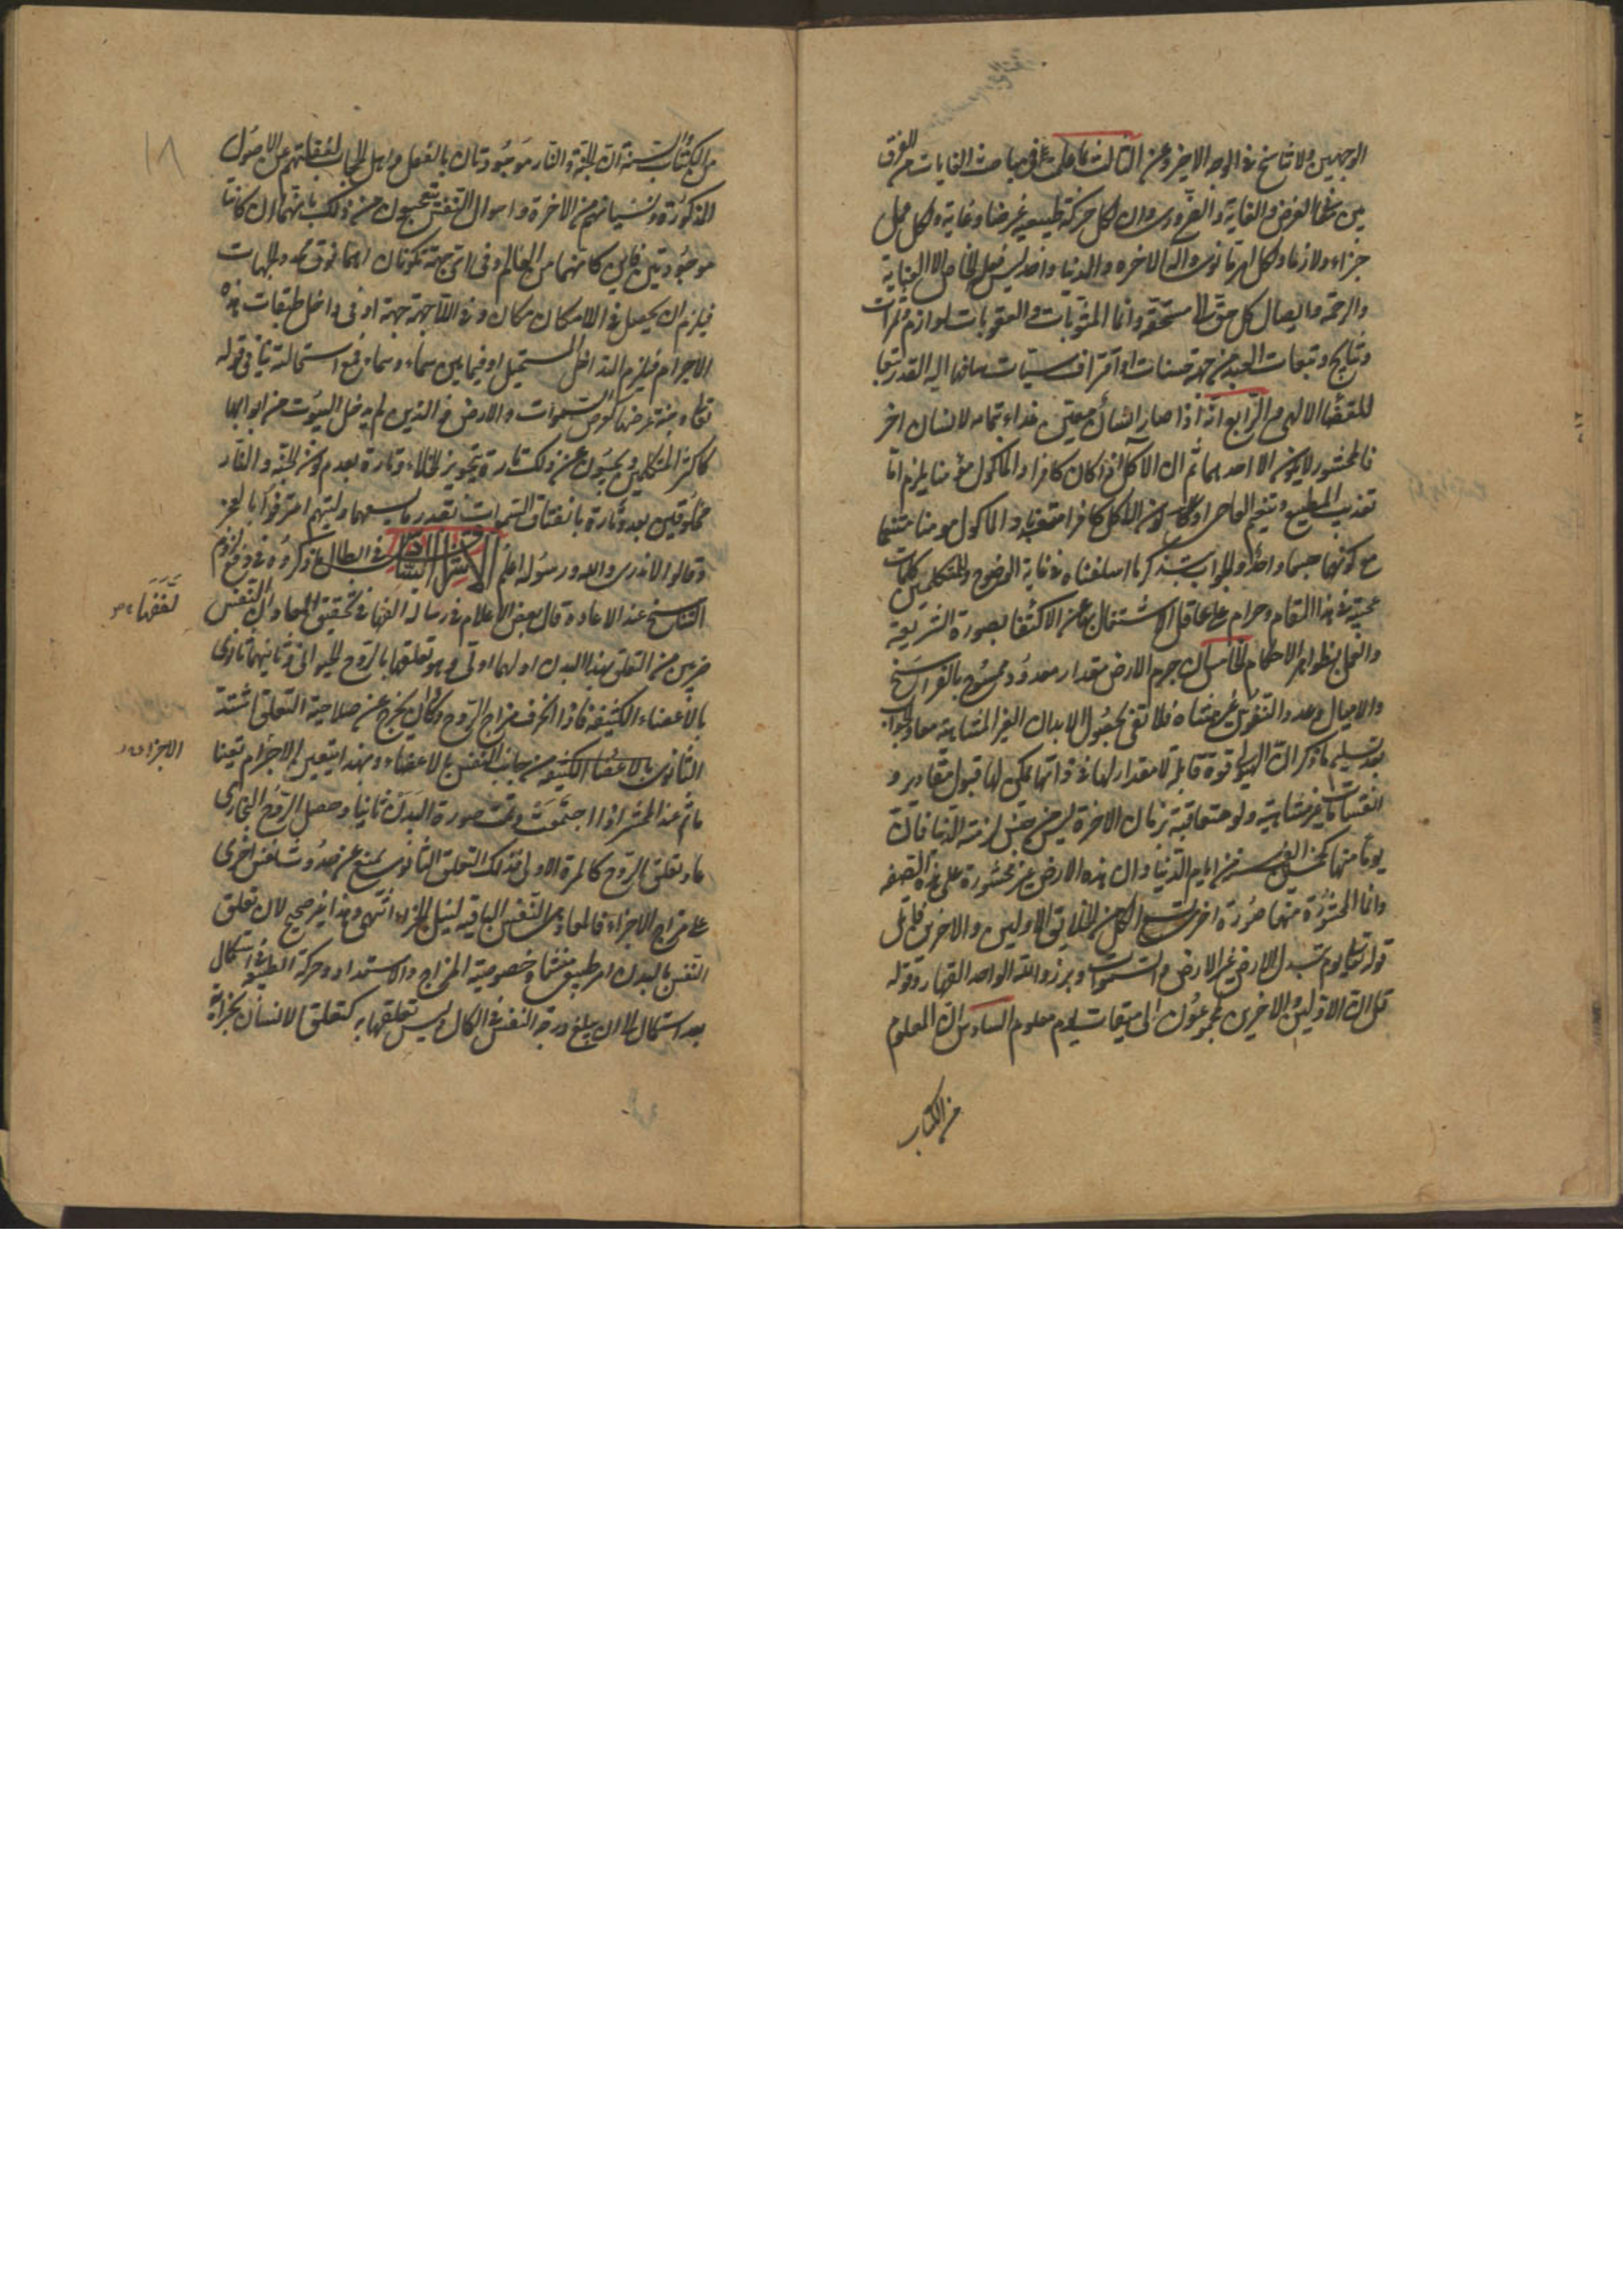 الوجهين ولا تناسخ في الوجه الاخير وعن الثالث ما علمت في مباحث الغايات من الفرق
بين معنى الغرض والغاية والضروري وان لكل حركة طبيعية غرضا وغاية ولكل عمل
جزاء ولازما ولكل امرء ما نوى واله الاخرة والدنيا واحد ليس فعله الخاص الا العناية
والرحمة وايصال كل حق الى مستحقه وانما المثوبات والعقوبات لوازم وثمرات
ونتايج وتبعات العبد من جهة حسنات او اقتراف سيئات ساقها اليه القدر تبعا
للقضاء الالهي الرابع انه اذا صار انسان معين غذاء بتمامه لانسان اخر
فالمحشور لا يكون الا احدهما ثم ان الآكل اذا كان كافرا والماكول مؤمنا يلزم اما
تعذيب المطيع وتنعيم العاصي او يكون الآكل كافرا معذبا والماكول مومنا متنعما
مع كونهما جسما واحدا والجواب بتذكر ما اسلفناه في غاية الوضوح وللمتكلمين كلمات
عجيبة في هذا المقام وحرام على عاقل الاشتغال بها عن الاكتفا بصورة الشريعة
والعمل بظواهر الاحكام الخامس ان جرم الارض مقدار معدود ممسوح بالفراسخ
والاميال وعدد النفوس غير متناه فلا تفي بحصول الابدان الغير المتناهية معا والجواب
بعد تسليم ما ذكر ان الهيولى قوة قابلة لا مقدار لها في ذاتها يمكن لها قبول مقادير و
انقسامات غير متناهية ولو متعاقبة وزمان الاخرة ليس من جنس ازمنة الدنيا فان
يوما منها كخمسين الف سنة من ايام الدنيا وان هذه الارض غير محشورة على هذه الصفة
وانما المحشورة منها صورة اخرى تسع الكل من الخلايق الاولين والاخرين فاتل
قوله تعالى يوم تبدل الارض غير الارض والسموات وبرزوا لله الواحد القهار وقوله
قل ان الاولين والاخرين لمجموعون الى ميقات يوم معلوم السادس ان المعلوم
من الكتاب
١٨
من الكتاب والسنة ان الجنة والنار موجودتان بالفعل واهل الحجاب لغفلتهم عن الاصول
المذكورة ونسيانهم من الاخرة واحوال النفس يتعجبون من ذلك بانهما ان كانتا
موجودتين فاين مكانهما من العالم وفي اي جهة تكونان اهما فوق محدد الجهات
فيلزم ان يحصل في اللامكان مكان وفي اللاجهة جهة او في داخل طبقات هذه
الاجرام فيلزم التداخل المستحيل او فيما بين سماء وسماء فمع استحالته ينافي قوله
تعالى وجنة عرضها كعرض السموات والارض فالذين لم يدخل البيوت من ابوابها
كاكثر المتكلمين يجيبون عن ذلك تارة بتجويز الخلاء وتارة بعدم كون الجنة والنار
مخلوقتين بعد وتارة بانفتاق السموات بقدر ما يسعهما وليتهم اعترفوا بالعجز
وقالوا لا ندري والله ورسوله اعلم الاشراق الثالث في ابطال ما ذكروه في دفع لزوم
التناسخ عند الاعادة قال بعض الاعلام في رسالة الفها في تحقيق المعاد ان للنفس
ضربين من التعلق بهذا البدن اولهما اولي وهو تعلقها بالروح الحيواني وثانيهما ثانوي
بالاعضاء الكثيفة فاذا انحرف مزاج الروح وكاد ان يخرج عن صلاحية التعلق اشتد
الثانوي بالاعضا الكثيفة من جانب النفس بالاعضاء وبهذا يتعين الاجرام تعينا
ما ثم عند الحشر اذا اجتمعت وتمت صورة البدن ثانيا وحصل الروح البخاري
عاد تعلق الروح كالمرة الاولى فذلك التعلق الثانوي يمنع عن حدوث نفس اخرى
على مزاج الاجزاء فالمعاد هي النفس الباقيه لنيل الجزاء انتهى وهذا غير صحيح لان تعلق
النفس بالبدن امر طبيعي منشاه خصوصية المزاج والاستعداد وحركة الطبيعة في استكمال
بعد استكمال الى ان يبلغ درجة النفس في الكمال وليس تعلقها به كتعلق الانسان بخرابة
الاجزاء